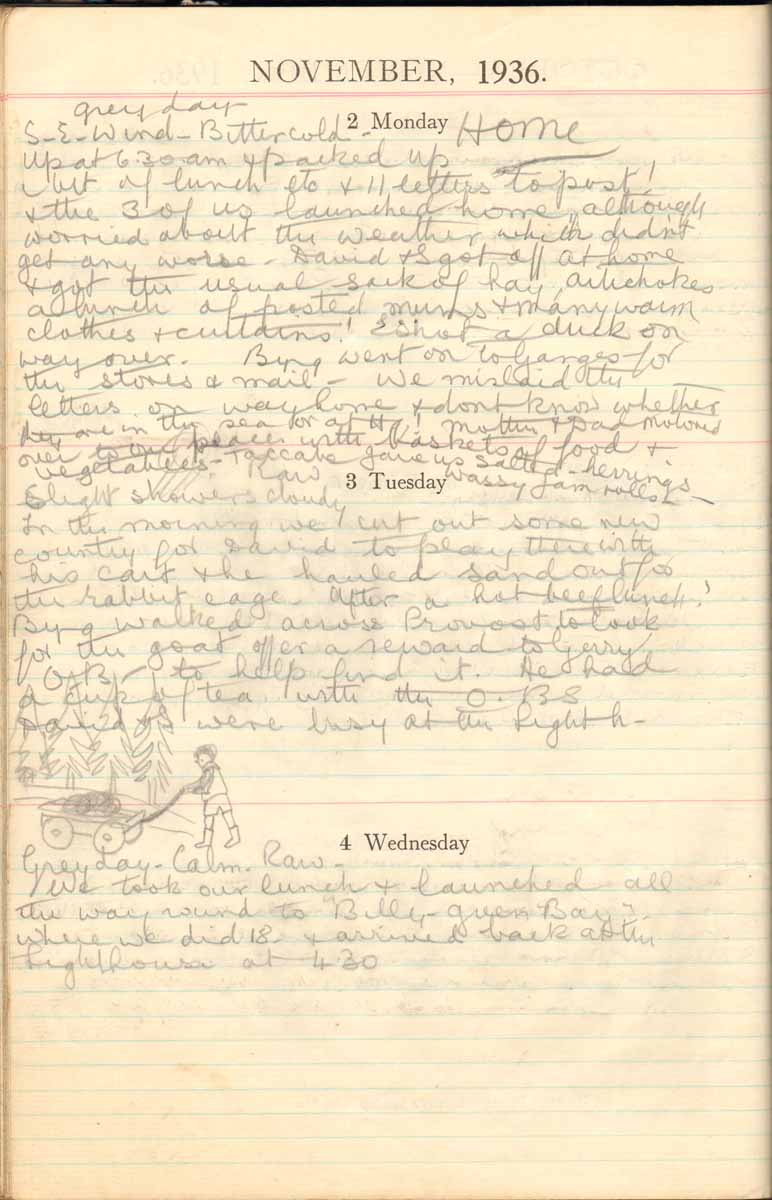 NOVEMBER, 1936.
grey day
2 Monday Home
S-E-Wind-Bitter cold-
Up at 6.30 am & packed up
lunch etc & 11 letters to post!
& the 3 of us launched home, although
worried about the weather which didn't
get any worse - David & I got off at home
& got the usual sack of hay, artichokes
a bunch of posted mums & many warm
clothes & curtains! Shot a duck on
way over. Byng went on to Ganges for
the stores & mail - We mislaid the
letters on way home & dont know whether
they are in the sea or at H! Mother & Dad motored
over to our place with baskets of food &
vegetables - gave us salted herrings
3 Tuesday Raw wassy Jam rolls -
Slight showers cloudy
In the morning we cut out some new
country for David to play there with
his cart & he hauled sand out for
the rabbit cage. After a hot beef lunch!
Byng walked across Provost to look
for the goat offer a reward to Gerry
O. B - to help find it. He had
a cup of tea with the O. BS
David & I were busy at the Light h-
4 Wednesday
Grey day - Calm. Raw -
We took our lunch & launched all
the way round to "Billy-guen Bay"
where we did 18 - & arrived back at the
Lighthouse at 4.30